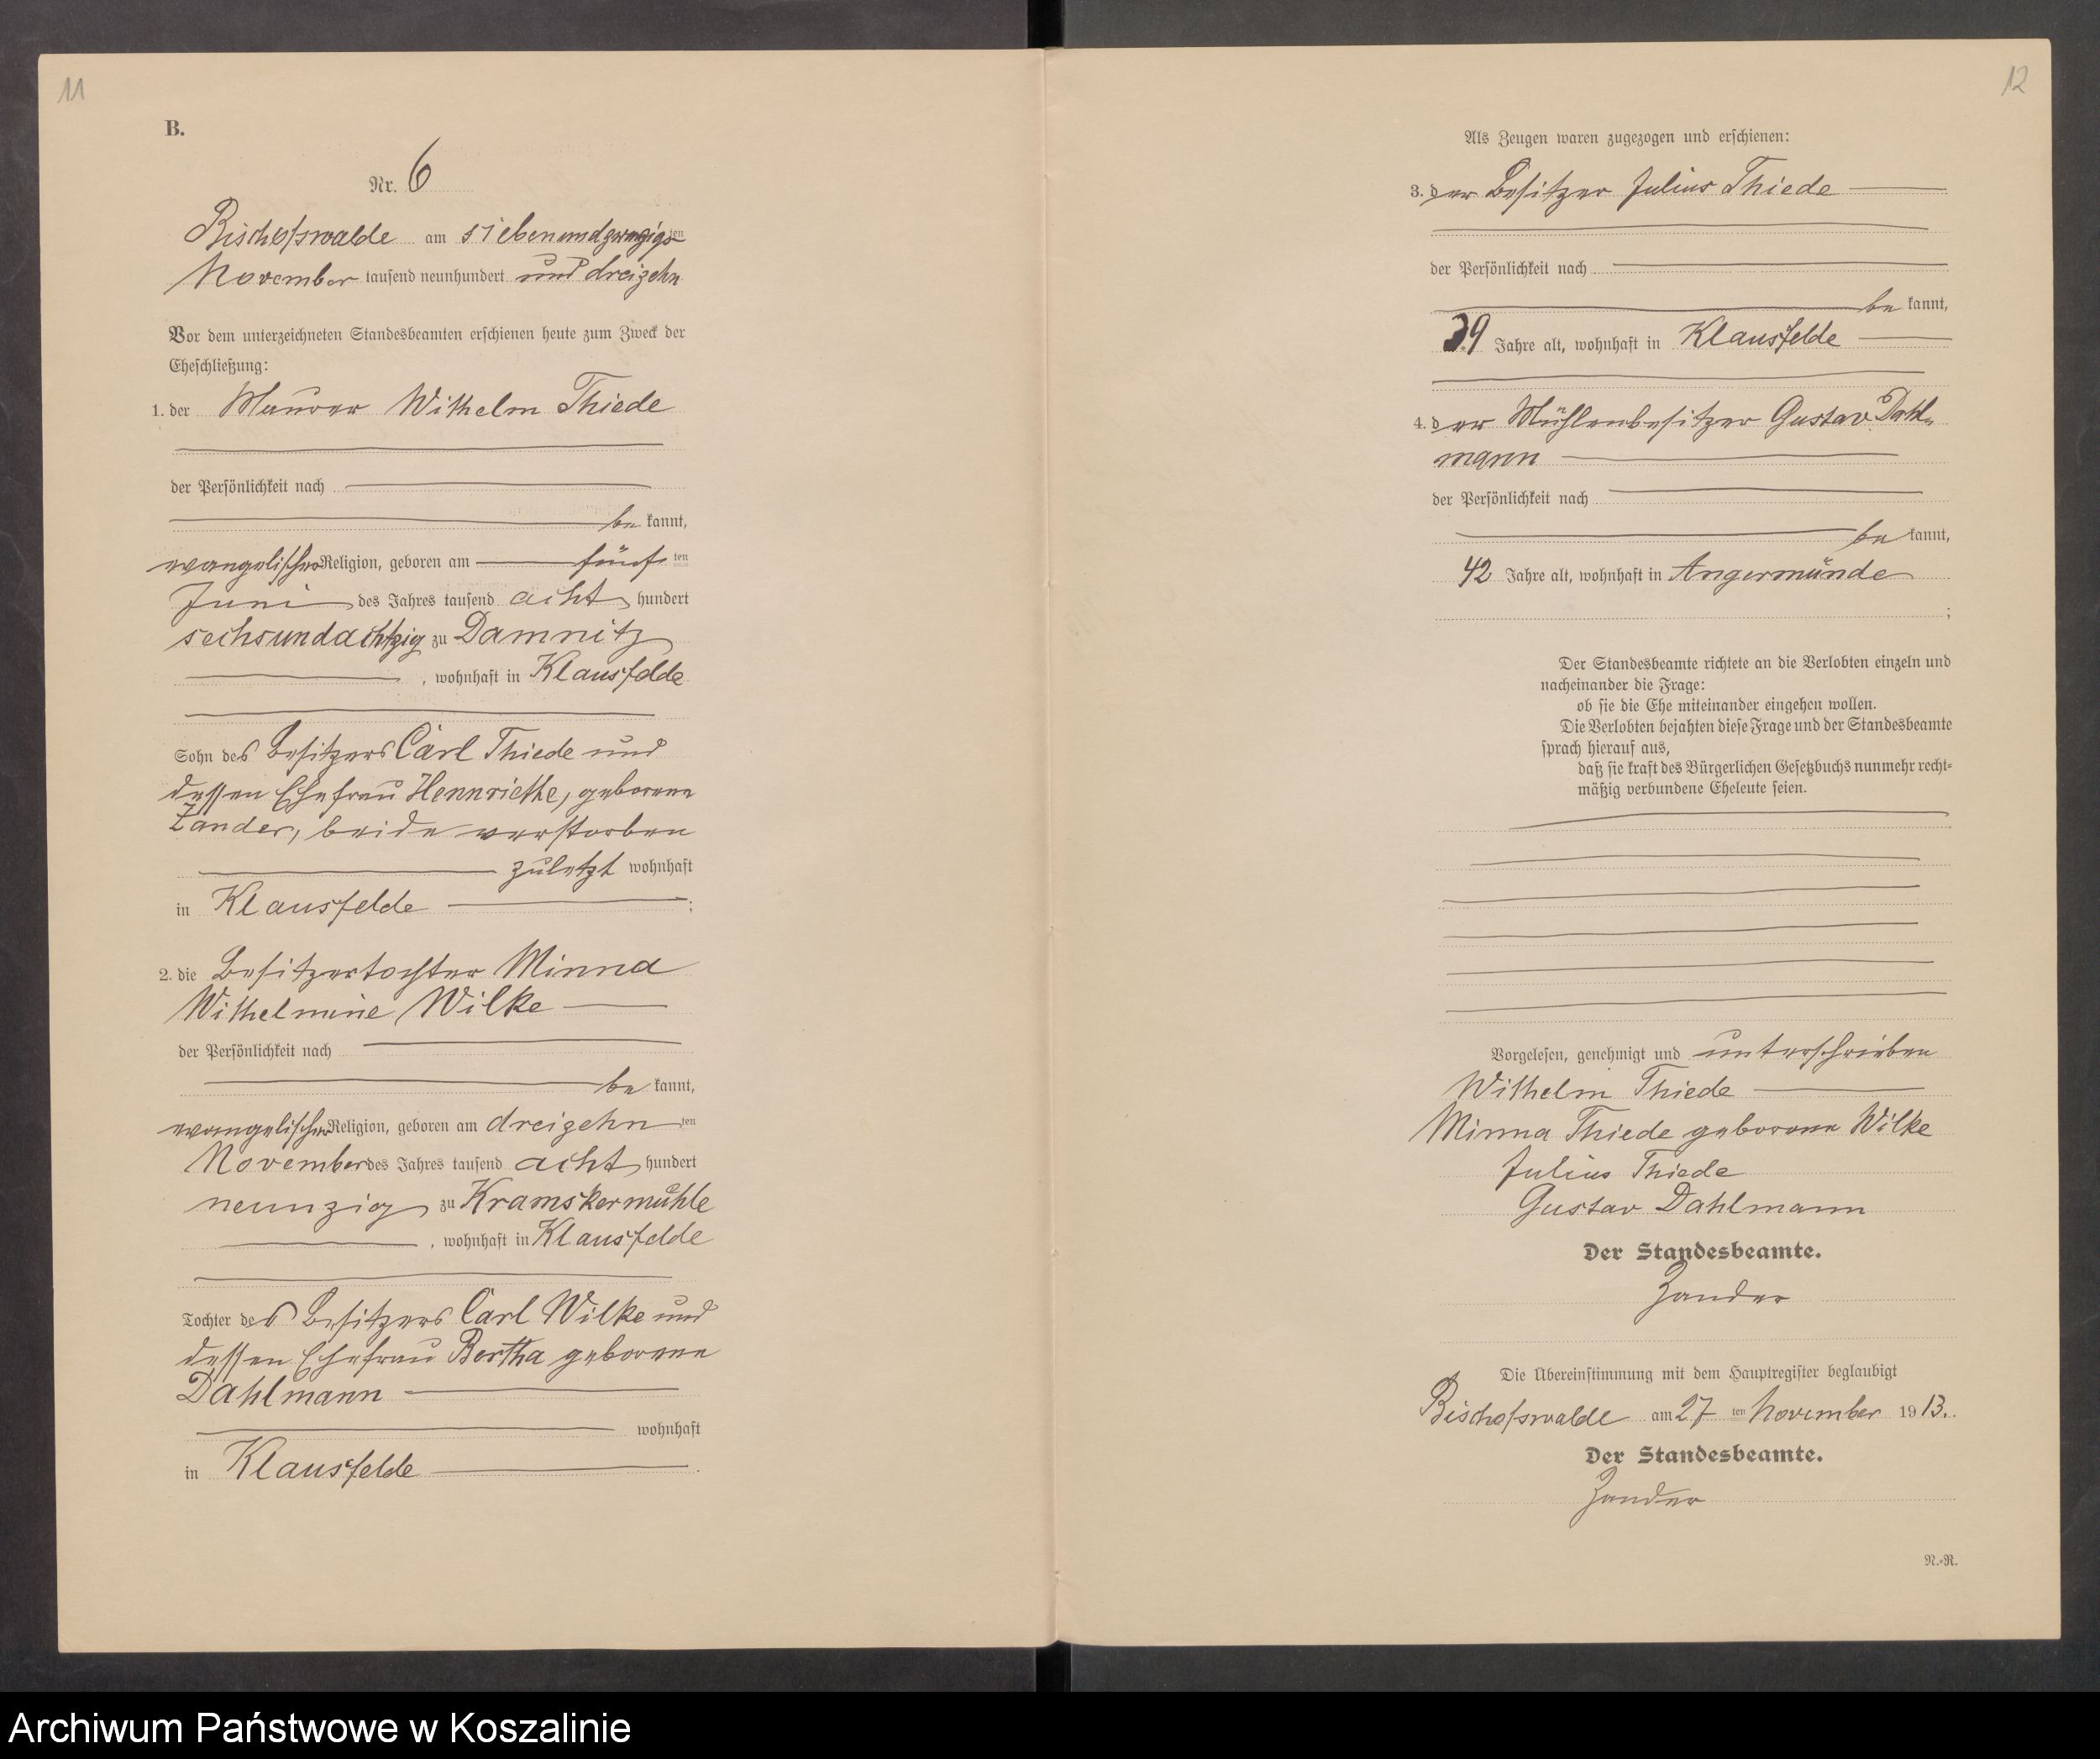 11
B.
Nr. 6
Bischofswalde am siebenundzwanzigsten
November tausend neunhundert und dreizehn
Vor dem unterzeichneten Standesbeamten erschienen heute zum Zweck der
Eheschließung:
1. der Maurer Wilhelm Thiede
der Persönlichkeit nach
be kannt,
evangelischer Religion, geboren am fünf ten
Juni des Jahres tausend acht hundert
sechsundachtzig zu Damnitz
, wohnhaft in Klausfelde
Sohn des Besitzers Carl Thiede und
dessen Ehefrau Hennriethe, geborene
Zander, beide verstorben
zuletzt wohnhaft
in Klausfelde ;
2. die Besitzertochter Minna
Wilhelmine Wilke
der Persönlichkeit nach
be kannt,
evangelischer Religion, geboren am dreizehn ten
November des Jahres tausend acht hundert
neunzig zu Kramskermühle
, wohnhaft in Klausfelde
Tochter des Besitzers Carl Wilke und
dessen Ehefrau Bertha geborene
Dahlmann
wohnhaft
in Klausfelde .
12
Als Zeugen waren zugezogen und erschienen:
3. der Besitzer Julius Thiede
der Persönlichkeit nach
be kannt,
39 Jahre alt, wohnhaft in Klausfelde
4. der Mühlenbesitzer Gustav Dahl=
mann
der Persönlichkeit nach
be kannt,
42 Jahre alt, wohnhaft in Angermünde
;
Der Standesbeamte richtete an die Verlobten einzeln und
nacheinander die Frage:
ob sie die Ehe miteinander eingehen wollen.
Die Verlobten bejahten diese Frage und der Standesbeamte
sprach hierauf aus,
daß sie kraft des Bürgerlichen Gesetzbuchs nunmehr recht=
mäßig verbundene Eheleute seien.
Vorgelesen, genehmigt und unterschrieben
Wilhelm Thiede
Minna Thiede geborene Wilke
Julius Thiede
Gustav Dahlmann
Der Standesbeamte.
Zander
Die Übereinstimmung mit dem Hauptregister beglaubigt
Bischofswalde am 27 ten November 1913.
Der Standesbeamte.
Zander
N.=R.
Archiwum Państwowe w Koszalinie